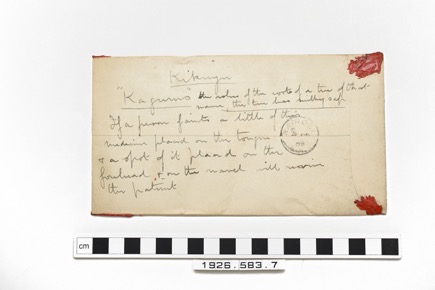 Kikuyu
"Kagumo" the ashes of the roots of a tree of that
name, this tree has milky sap
If a person faints a little of this
medicine placed on the tongue
& a spot of it placed on the
forehead, & on the navel will revive
the patient
cm
1926.583.7